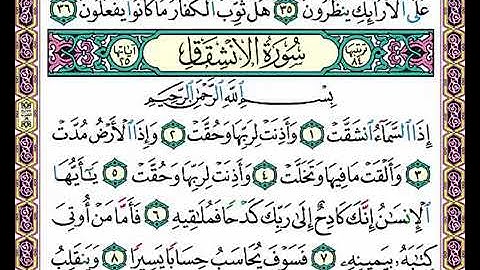 عَلَى ٱلْأَرَآئِكِ يَنظُرُونَ ٣٥ هَلْ ثُوِّبَ ٱلْكُفَّارُ مَا كَانُوا۟ يَفْعَلُونَ ٣٦
سُورَةُ الانْشِقَاقِ
بِسْمِ ٱللَّهِ ٱلرَّحْمَٰنِ ٱلرَّحِيمِ
إِذَا ٱلسَّمَآءُ ٱنشَقَّتْ ١ وَأَذِنَتْ لِرَبِّهَا وَحُقَّتْ ٢ وَإِذَا ٱلْأَرْضُ مُدَّتْ
٣ وَأَلْقَتْ مَا فِيهَا وَتَخَلَّتْ ٤ وَأَذِنَتْ لِرَبِّهَا وَحُقَّتْ ٥ يَٰٓأَيُّهَا
ٱلْإِنسَٰنُ إِنَّكَ كَادِحٌ إِلَىٰ رَبِّكَ كَدْحًا فَمُلَٰقِيهِ ٦ فَأَمَّا مَنْ أُوتِىَ
كِتَٰبَهُۥ بِيَمِينِهِۦ ٧ فَسَوْفَ يُحَاسَبُ حِسَابًا يَسِيرًا ٨ وَيَنقَلِبُ